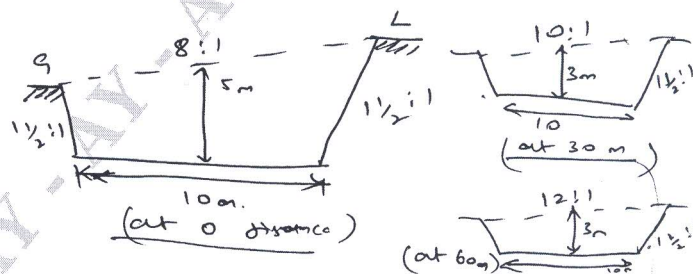 G
8:1
L
5m
1 1/2:1
1 1/2:1
10m.
(at 0 distance)
10:1
3m
1 1/2:1
10
(at 30 m)
12:1
3m
1 1/2:1
(at 60m)
10m
AY - AY - A